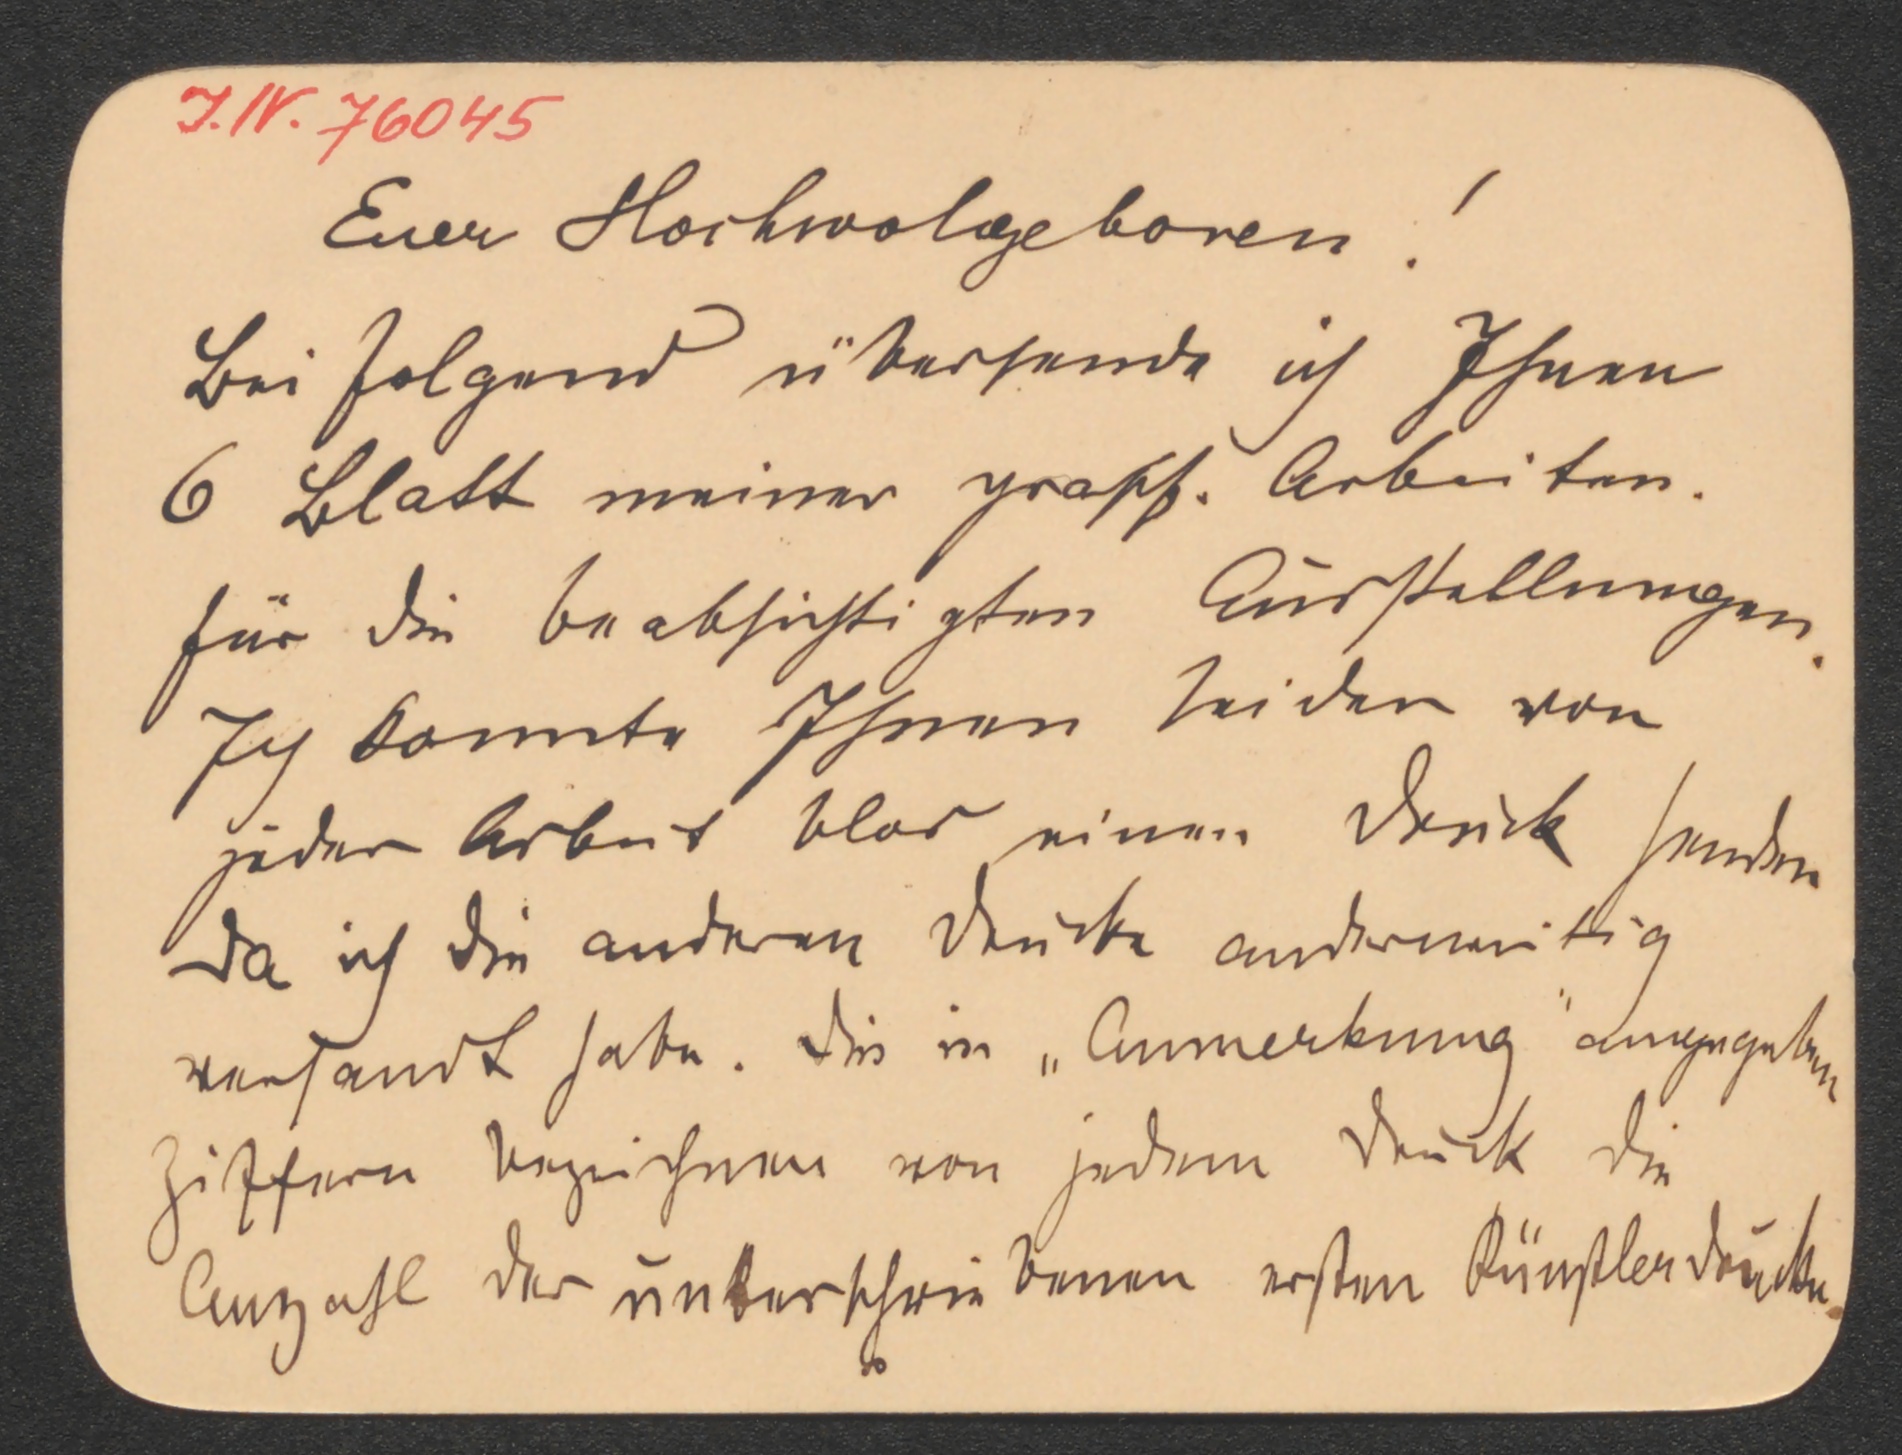 J.N. 76045
Euer Hochwolgeboren!
Beifolgend übersende ich Ihnen
6 Blatt meiner graph. Arbeiten.
für die beabsichtigten Ausstellungen.
Ich konnte Ihnen leider von
jeder Arbeit blos einen Druck senden
da ich die anderen Drucke anderweitig
versandt habe. Die in „Anmerkung" angegeben
Ziffern bezeichnen von jedem Druck die
Anzahl der unterschriebenen ersten Künstlerdrucke.